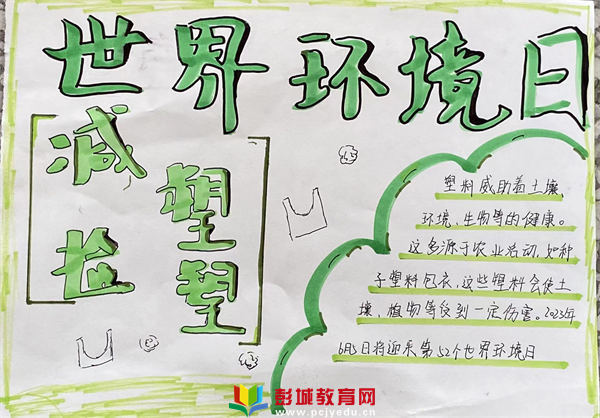 世界环境日
减塑
捡塑
塑料威胁着土壤
环境、生物等的健康。
这多源于农业活动,如种
子塑料包衣,这些塑料会使土
壤、植物等受到一定伤害。2023年
6月5日将迎来第52个世界环境日
彭城教育网
www.pcjyedu.cn